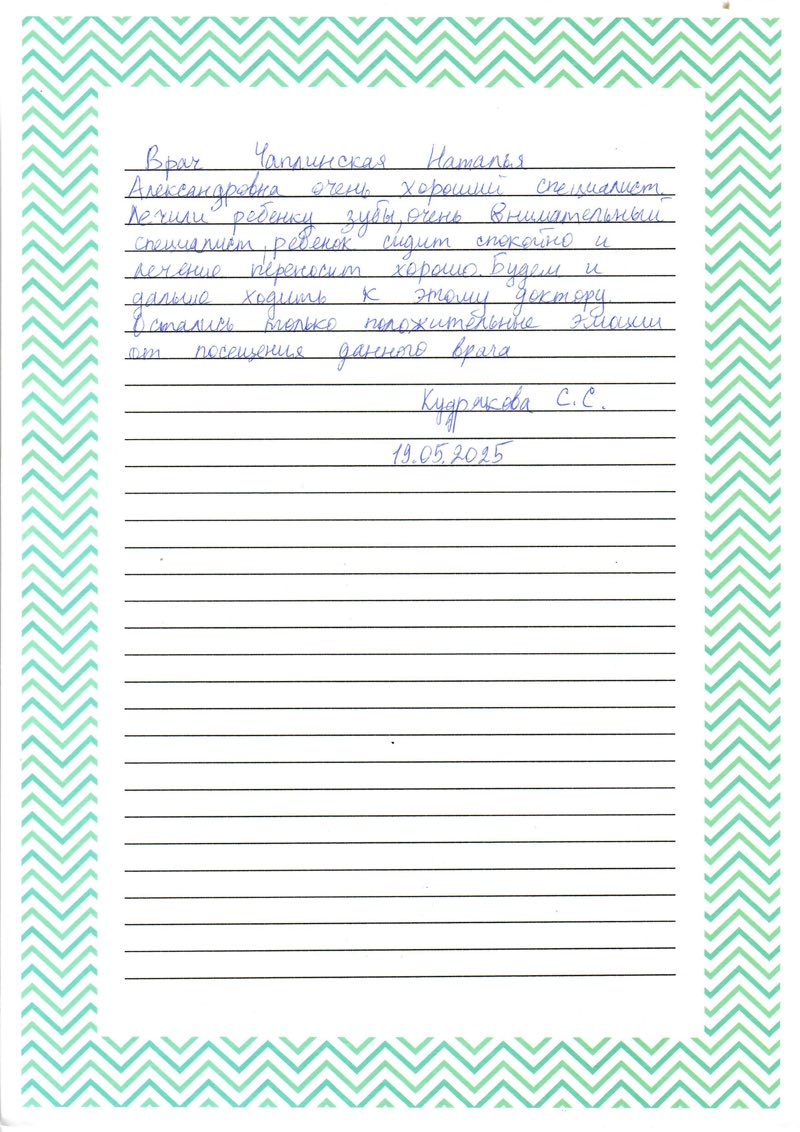 Врач Чаплинская Наталья
Александровна очень хороший специалист.
Лечили ребенку зубы, очень внимательный
специалист, ребенок сидит спокойно и
лечение переносит хорошо. Будем и
дальше ходить к этому доктору.
Остались только положительные эмоции
от посещения данного врача
Кудрякова С.С.
19.05.2025